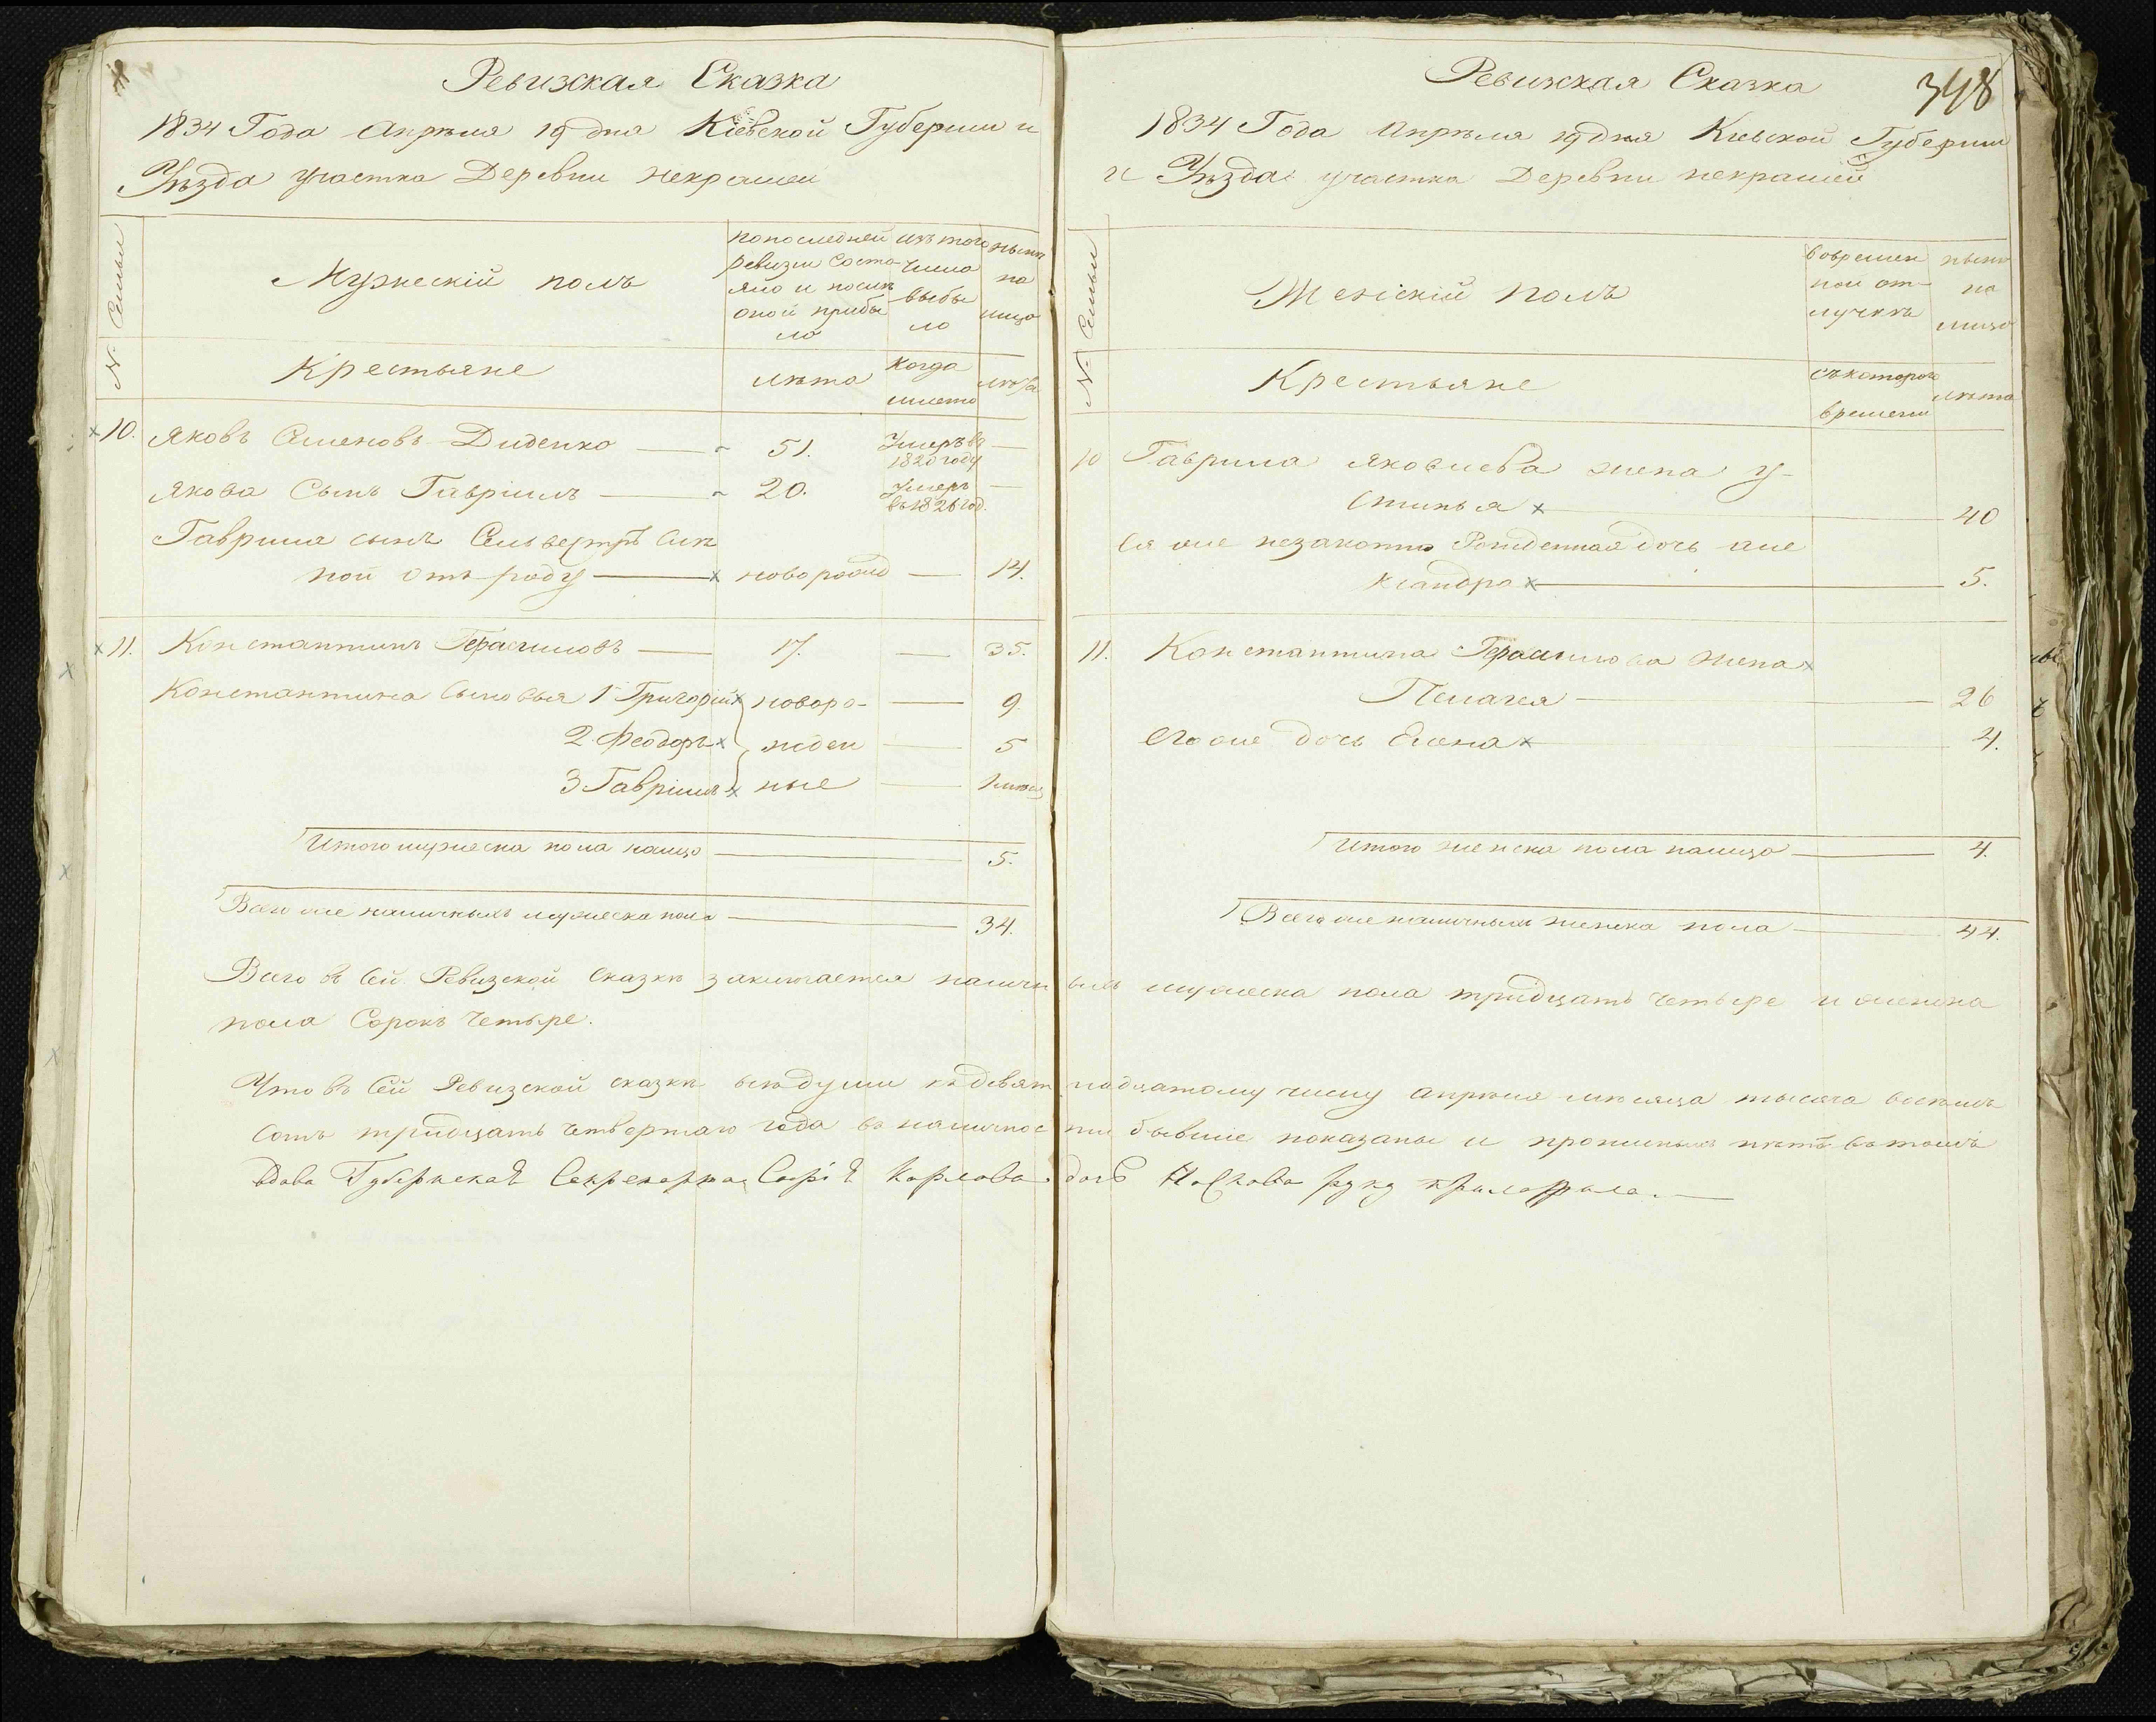 Ревизская Сказка
1834 Года Апреля 19 дня Кіевской Губернии и
Уѣзда участка Деревни некрашей
№ Семьи
Мужескій полъ
попоследней
ревизи состо-
яло и после
оной прибы
ло
изъ того
числа
выбы
ло
нынѣ
на
лицо
Крестьяне
лѣта
когда
името
лѣта
10. Яковъ Семеновъ Диденко — 51. Умеръ въ —
1820 году
Якова Сынъ Гавріилъ — 20. Умеръ —
въ 1826 год.
Гаврила сынъ Сельвертръ
ной отъ роду — новорожд — 14.
11. Константинъ Герасимовъ — 17. — 35.
Константина Сыновья 1 Григорій новоро- — 9
2. Феодоръ жден — 5
3 Гавріилъ ные —
Итого мужеска пола налицо — 5.
Всего же наличныхъ мужеска пола — 34.
348
Ревизская Сказка
1834 Года Апрѣля 19 дня Киевской Губернии
и Уѣзда участка Деревни некрашей
№ Семьи
Женскій полъ
вовремен
ной от-
лучкѣ
нынѣ
на
лицо
Крестьяне
съ котораго
времени
лѣта
10 Гаврила Яковлева жена У-
стинья — 40
Ея же незаконно Рожденная дочь але
ксандра — 5.
11. Константина Герасимова жена
Пелагея — 26
Его же дочь Елена — 4.
Итого женска пола налицо — 4.
Всего же наличныхъ женска пола — 44.
Всего въ Сей Ревизской Сказкѣ заключается наличныхъ мужеска пола тридцать четыре и женска
пола Сорокъ Четыре.
Что въ Сей Ревизской сказкѣ всѣ души къ девятнадцатому числу апрѣля мѣсяца тысяча восемь
сотъ тридцать четвертаго года въ наличности бывшіе показаны и прописныхъ нѣтъ въ томъ
вдова Губернская Секретарша Софія Карлова дочь руку приложила. —